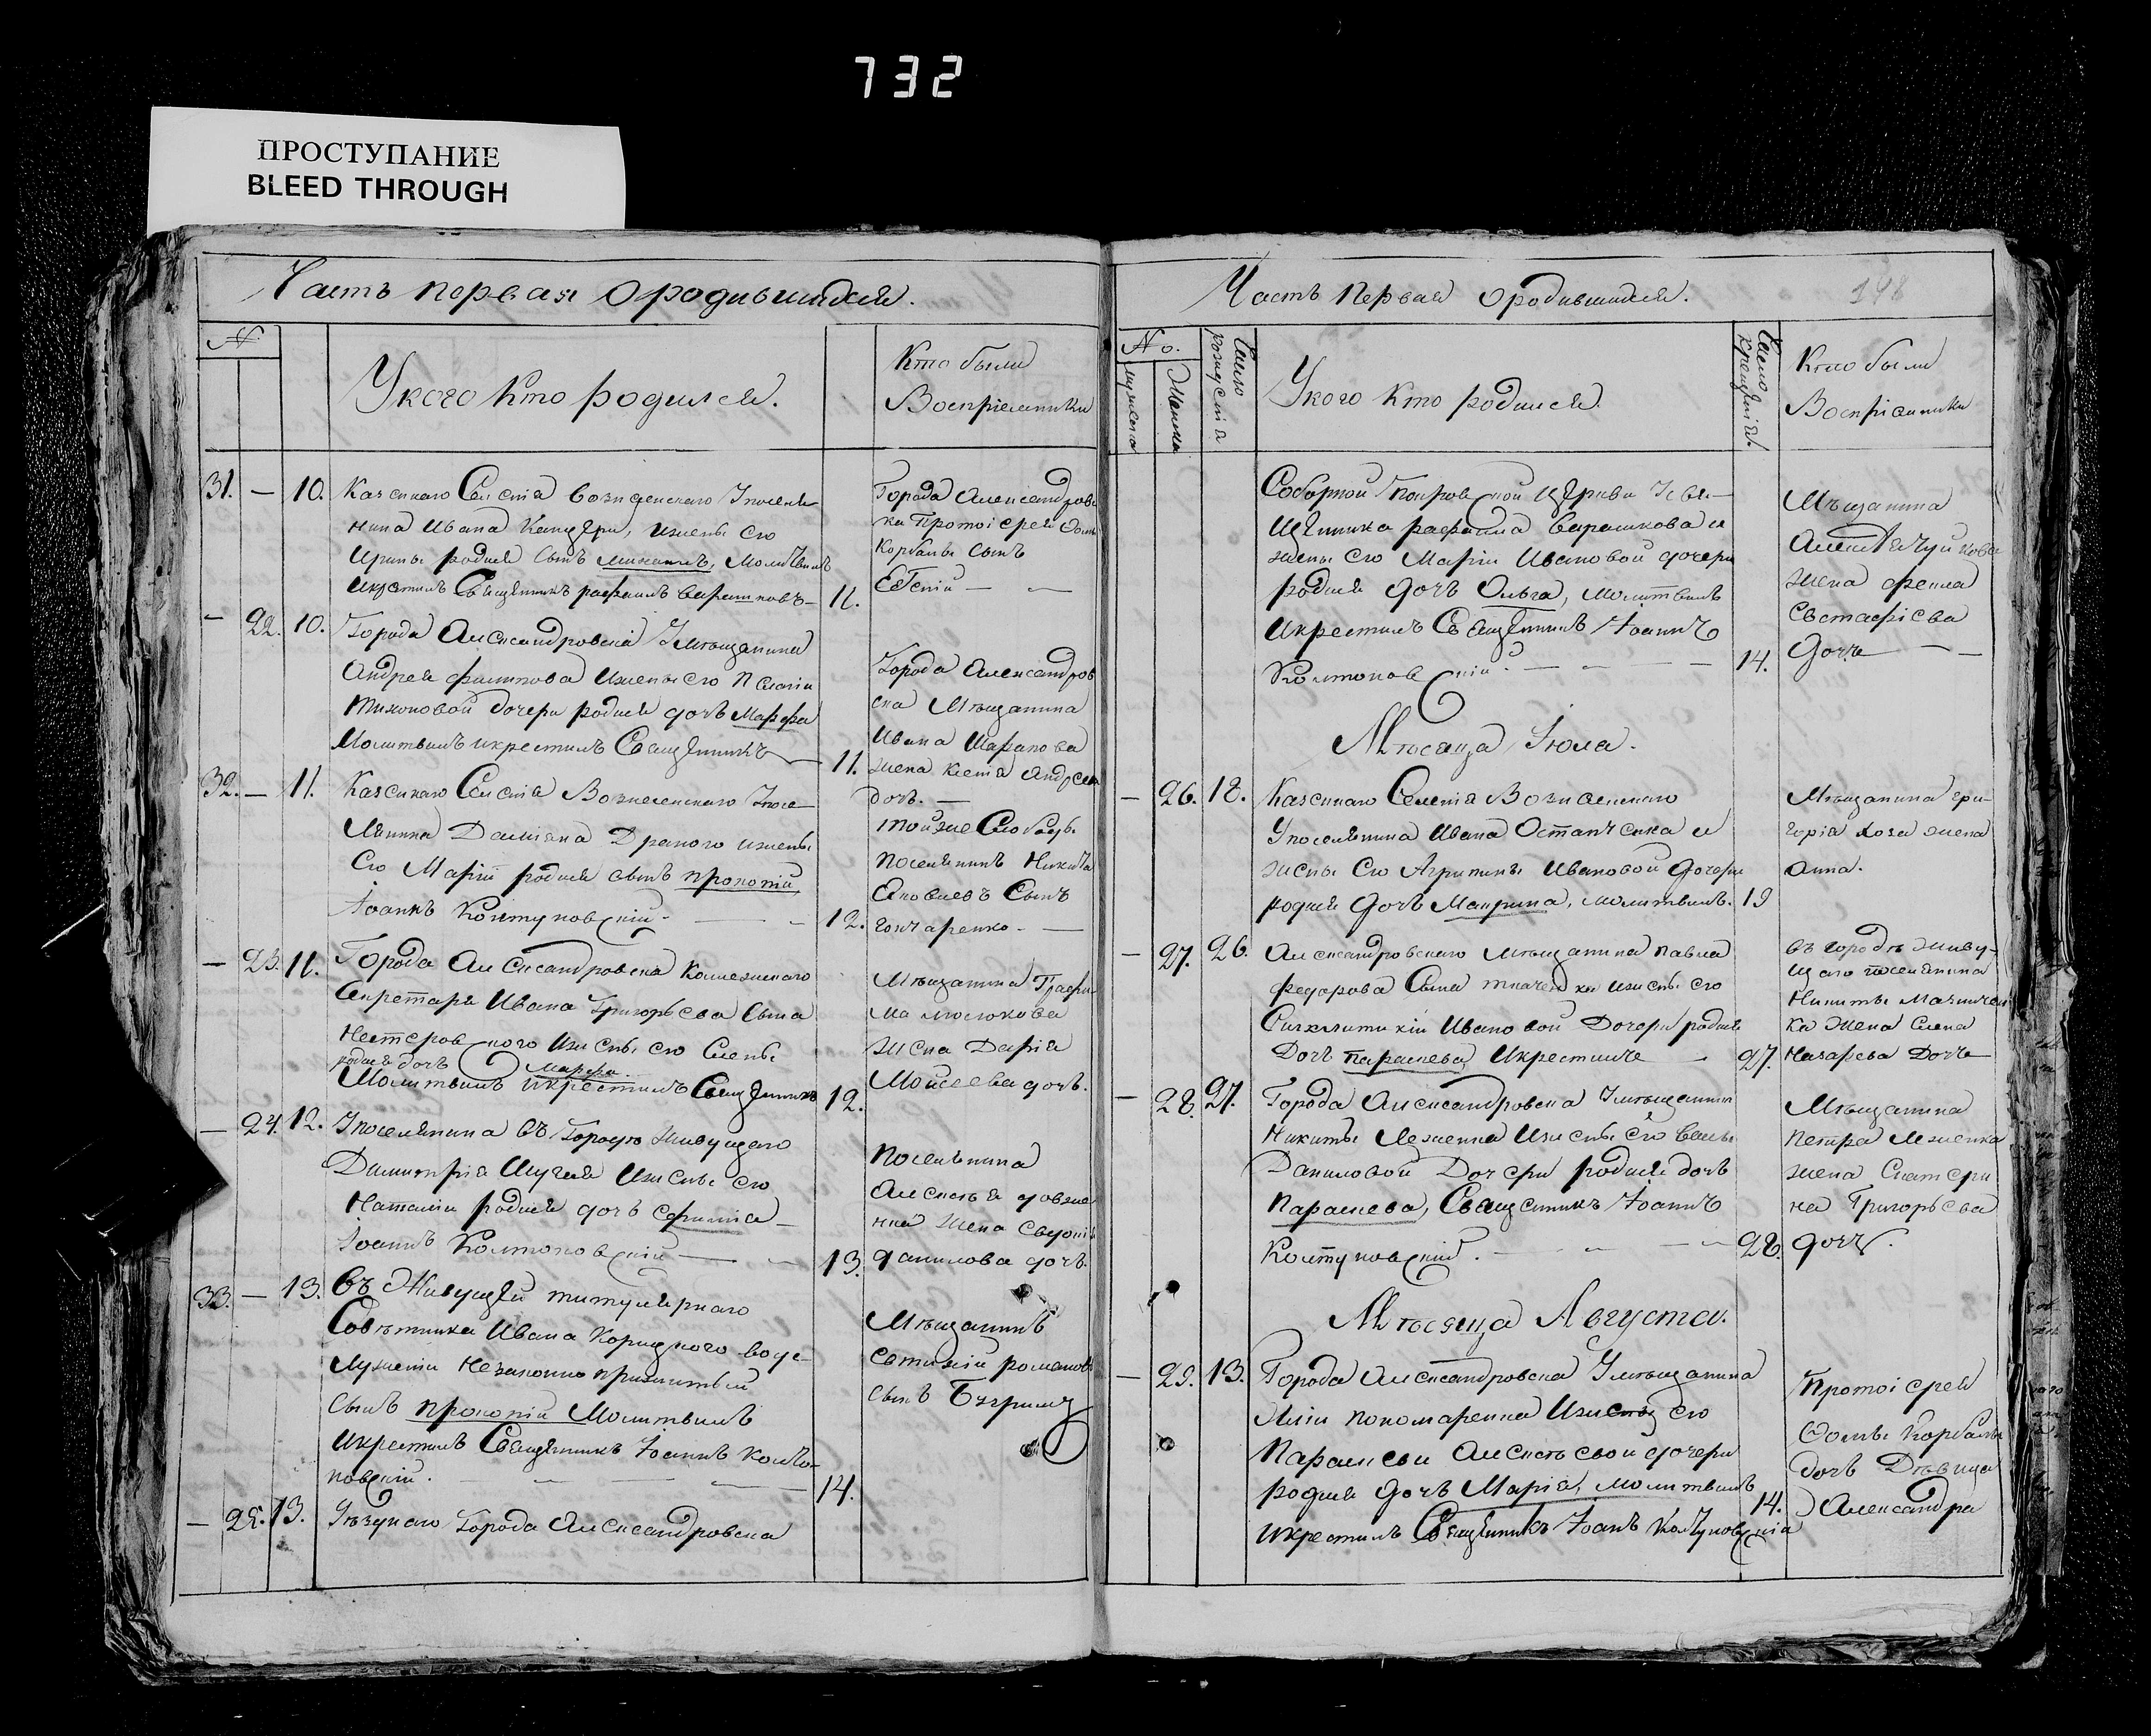 732
ПРОСТУПАНИЕ
BLEED THROUGH
Часть первая о родившихся.
№
У кого кто родился.
Кто были
Восприемники
31. — 10. Казеннаго Селенія Вознесенскаго Упоселя
нина Ивана и жены его
Ирины родился сынъ Михаилъ, Молитвилъ
и крестилъ Священникъ Рафаилъ Барашковъ — 11.
Города Александровс
ка Протоіерея Фомы
Корбалы сынъ
Евгеній —
— 22. 10. Города Александровска Умѣщанина
Андрея Филипова и жены его Пелагіи
Тихоновой дочери родися дочь Марфа
Молитвилъ и крестилъ Священникъ — 11.
Города Александров
ска Мѣщанина
Ивана Шарапова
жена Андреева
дочь. —
32. — 11. Казеннаго Селенія Вознесенскаго Упосе
лянина Даміана Дранаго и жены
его Маріи родися сынъ Прокопій,
Іоаннъ Колтуновскій. — 12.
тойже Слободы
поселянинъ Никита
Яковлевъ Сынъ
Гончаренко. —
— 23. 11. Города Александровска Коллежскаго
Секретаря Ивана Григорьева сына
Нестеровского и жены его Елены
родися дочь Марфа.
Молитвилъ и крестилъ Священникъ 12.
Мѣщанина Трофи
ма
жена Дарія
Моисеева дочь.
— 24. 12. Упоселянина въ Городѣ живущаго
Димитрія и жены его
Наталіи родися дочь Ефимія —
Іоаннъ Колтоновскій — 13.
Поселянина
Алексѣя Довже
нка жена Евдокія
Данилова дочь.
33. — 13. Въ живущей титулярнаго
Совѣтника Ивана Корицкого в услу
женіи незаконно прижитый
сынъ Прокопій Молитвилъ
и крестилъ Священникъ Іоаннъ Колто
новскій. — 14.
Мѣщанинъ
Евтихій Романовъ
сынъ
— 25. 13. Уѣзднаго Города Александровска
Часть первая о родившихся.
198
№.
мужеска
Женска
Число рожденія
У кого кто родился.
Число крещенія.
Кто были
Восприемники
Соборной Покровской церкви Свя
щенника Рафаила Барашкова и
жены его Маріи Ивановой дочери
родися дочь Ольга, молитвилъ
и крестилъ Священникъ Іоаннъ
Колтоновскій. — 14.
Мѣщанина
жена Фекла
Евстафіева
Дочь —
Мѣсяца Іюля.
— 26. 18. Казеннаго Селенія Вознесенскаго
Упоселянина Ивана Остапченка и
жены его Агрипины Ивановой дочери
родися дочь Макрина, молитвилъ. 19
Мѣщанина Гри
горія Коза жена
Анна.
— 27. 26. Александровскаго мѣщанина Павла
Федорова Сына и жены его
Ивановой Дочери родися
дочь Параскева, и крестилъ — 27.
въ городѣ живу
щаго поселянина
Никиты
ка жена Елена
Назарьева Дочь
— 28. 27. Города Александровска Умѣщанина
Никиты Леженка и жены его
Даниловой Дочери родися дочь
Параскева, Священникъ Іоаннъ
Колтуновскій. — 28.
Мѣщанина
Петра Леженка
жена Екатери
на Григорьева
дочь.
Мѣсяца Августа.
— 29. 13. Города Александровска Умѣщанина
Иліи Пономаренка и жены его
Параскевы Алексѣевой дочери
родися дочь Марія, молитвилъ
и крестилъ Священникъ Іоаннъ Колтуновскій 14.
Протоіерея
Фомы Корбалы
дочь Дѣвица
Александра